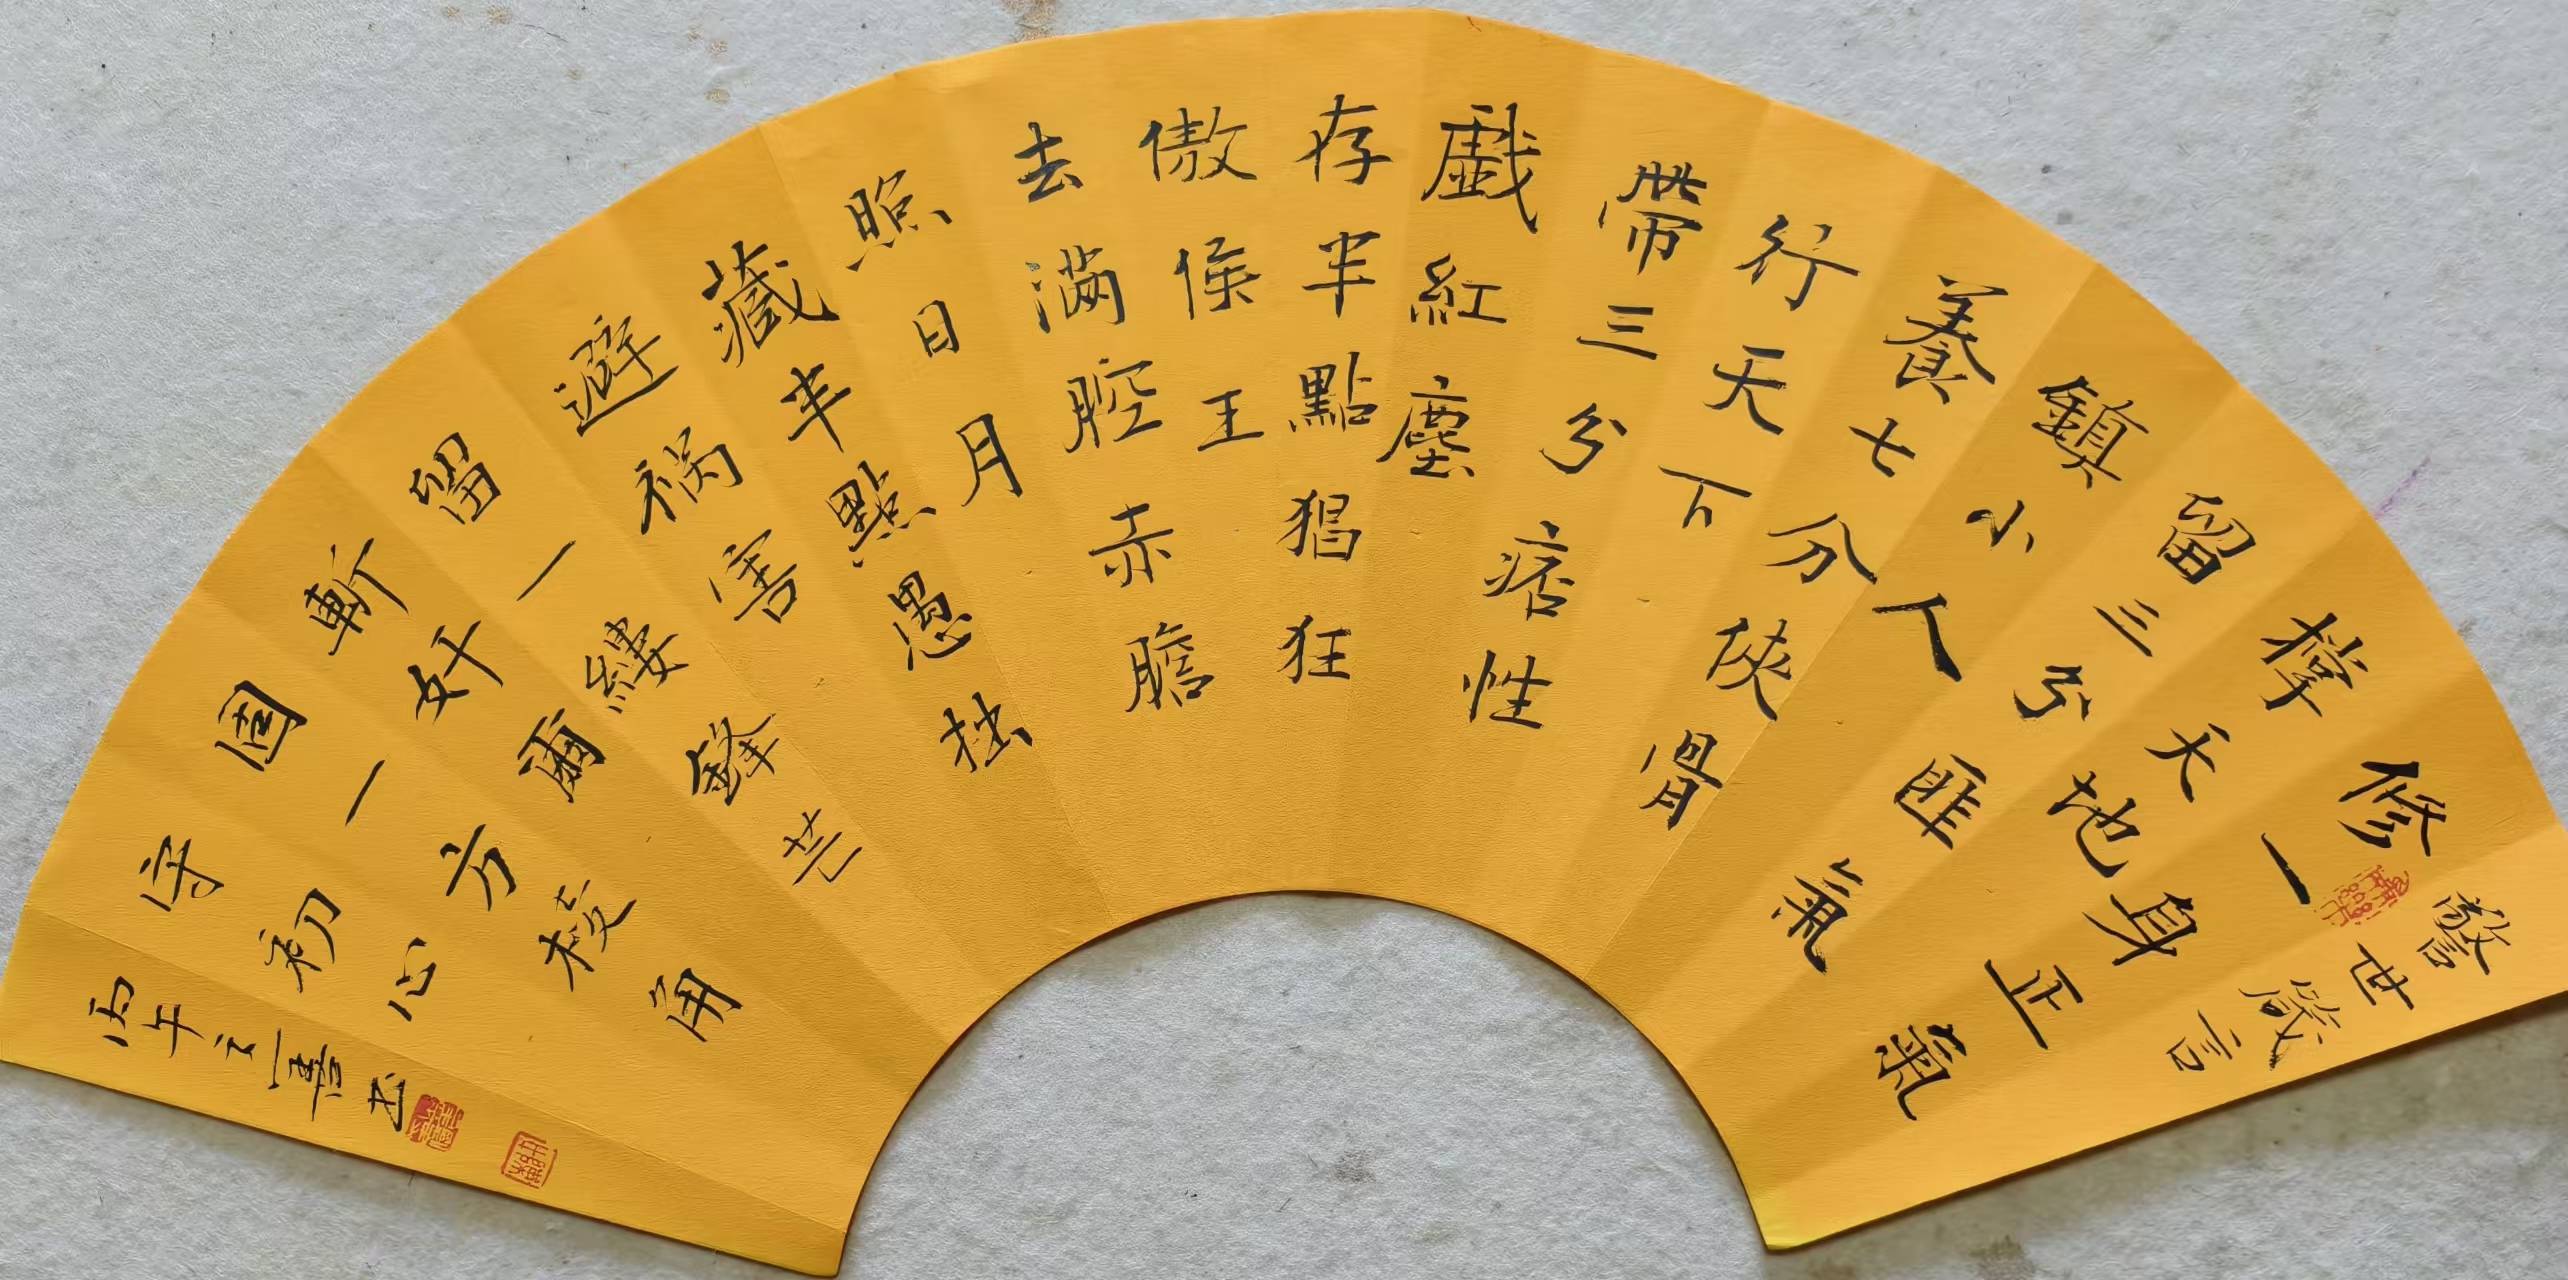 警世箴言
修一身正氣
撑天地
留三分匪氣
鎮小人
養七分俠骨
行天下
帶三分痞性
戲紅塵
存半點猖狂
傲侯王
去滿腔赤膽
照日月
藏半點愚拙
避禍害
留一縷鋒芒
斬奸爾
固一方棱角
守初心
丙午 书